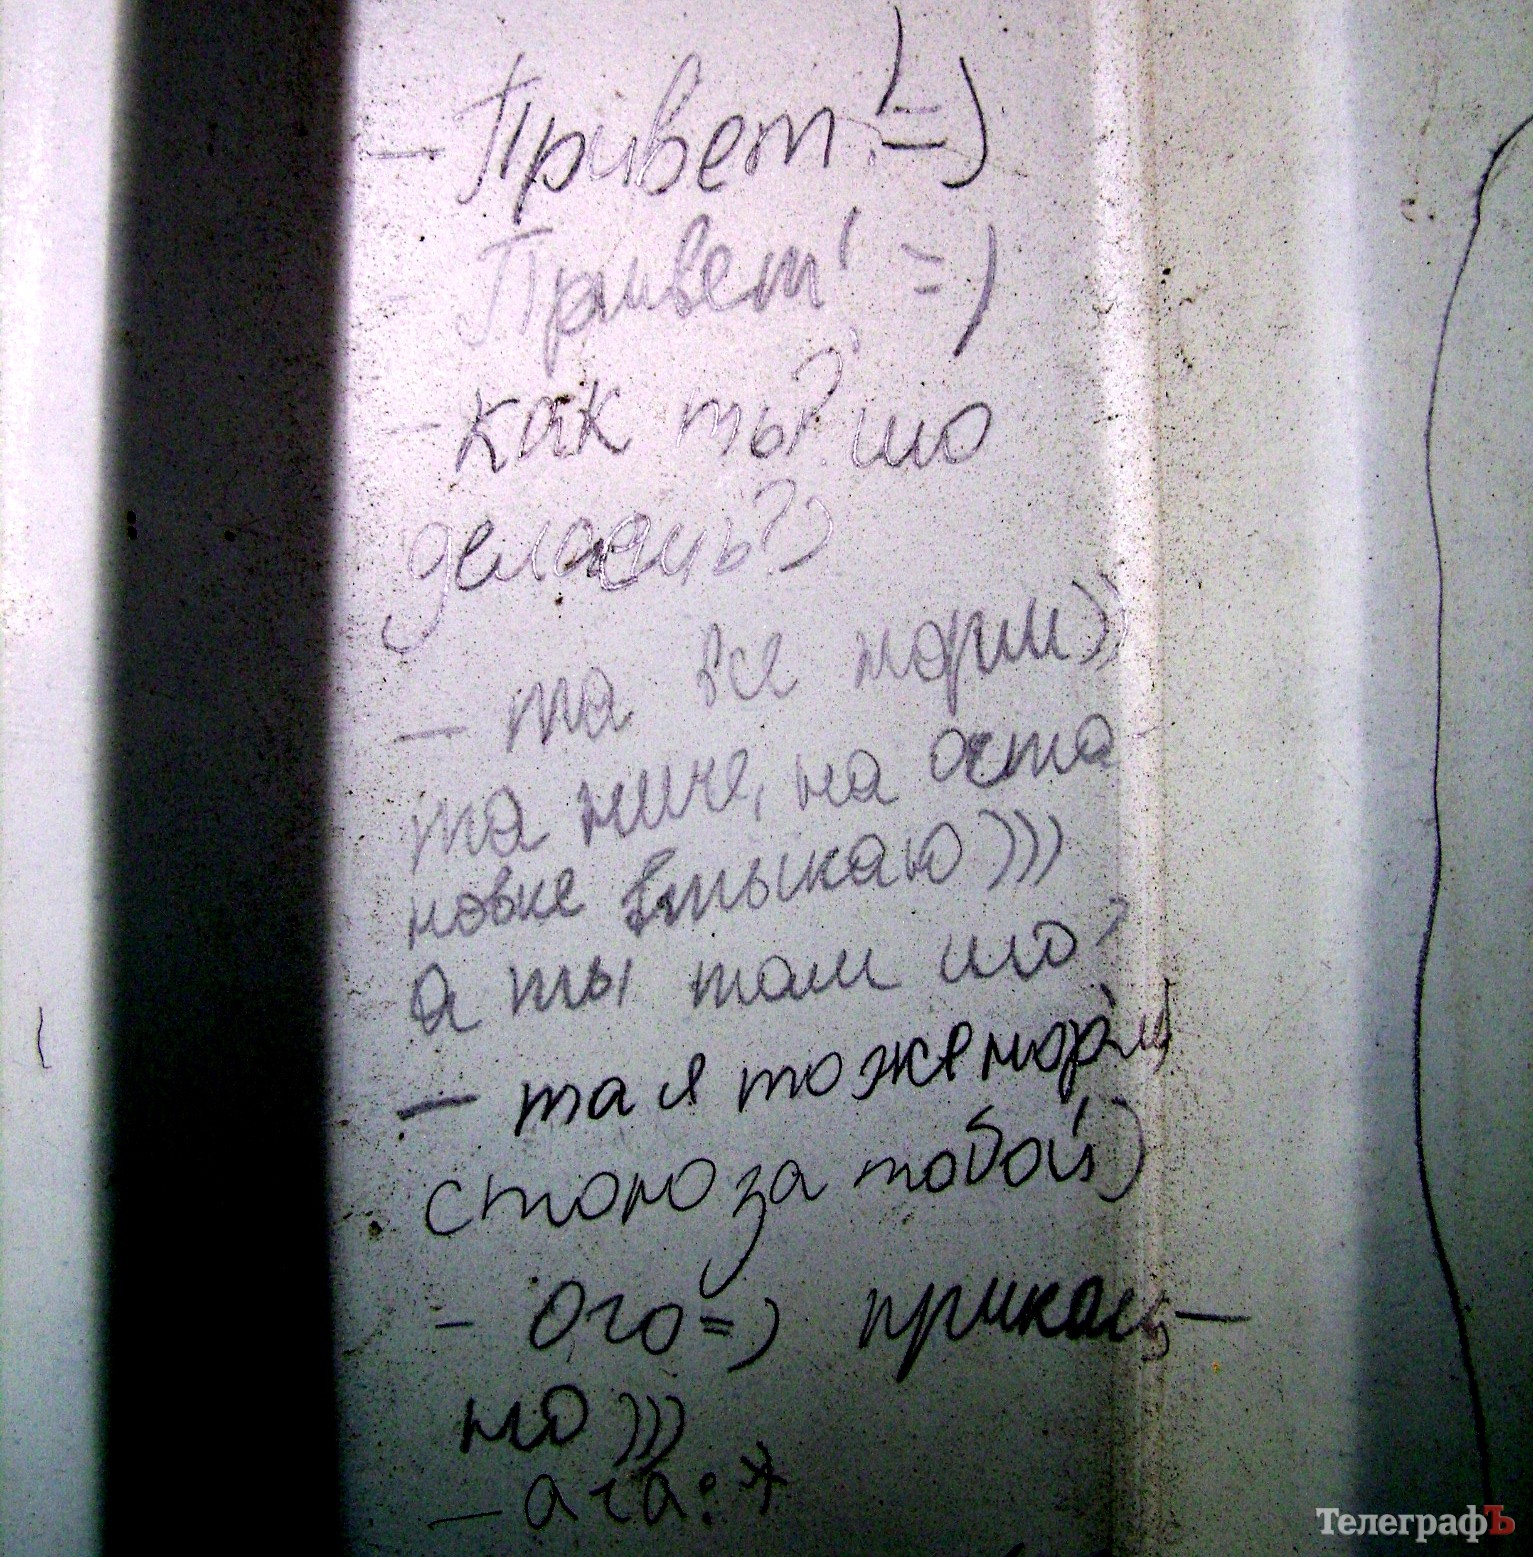 - Привет! =)
- Привет! =)
- как ты? шо
делаешь?)
- та все норм))
та ниче, на оста
новке втыкаю)))
а ты там шо?
- та я тоже норм,
стою за тобой)
- ого =) прикаль-
но)))
- ага :*
ТелеграфЪ